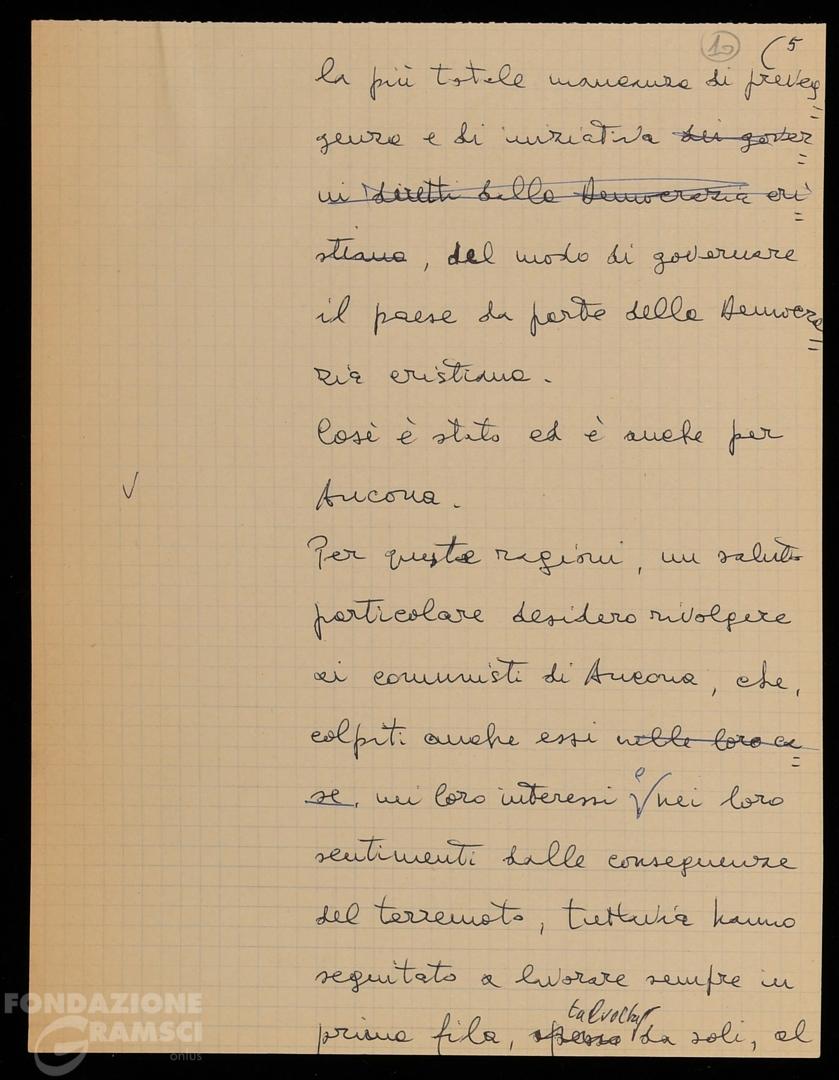 10 (5
la più totale mancanza di preveg=
genza e di iniziativa dei gover=
ni diretti dalla Democrazia cri=
stiana, del modo di governare
il paese da parte della Democra=
zia cristiana.
Così è stato ed è anche per
Ancona.
Per queste ragioni, un saluto
particolare desidero rivolgere
ai comunisti di Ancona, che,
colpiti anche essi nelle loro ca=
se, nei loro interessi e nei loro
sentimenti dalle conseguenze
del terremoto, tuttavia hanno
seguitato a lavorare sempre in
talvolta
prima fila, spesso da soli, al
FONDAZIONE
GRAMSCI
onlus